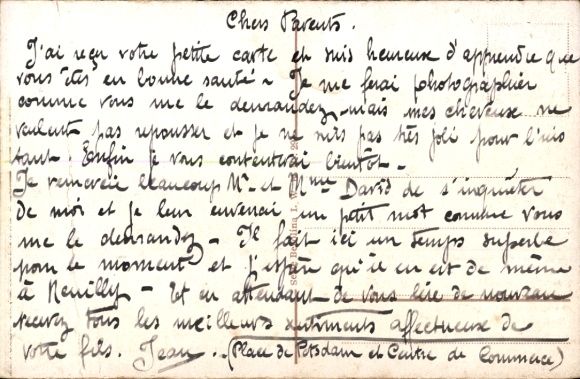 Chers Parents.
J'ai reçu votre petite carte et suis heureuse d'apprendre que
vous êtes en bonne santé - Je me ferai photographier
comme vous me le demandez, mais mes cheveux ne
veulent pas repousser et je ne suis pas très joli pour l'ins
tant. Enfin je vous contenterai bientôt -
Je remercie beaucoup Mr et Mme David de s'inquiéter
de moi et je leur enverrai un petit mot comme vous
me le demandez - Il fait ici un temps superbe
pour le moment et j'espère qu'il en est de même
à Neuilly - Et en attendant de vous lire de nouveau
recevez tous les meilleurs sentiments affectueux de
votre fils. Jean. (Place de Potsdam et Centre de Commerce)